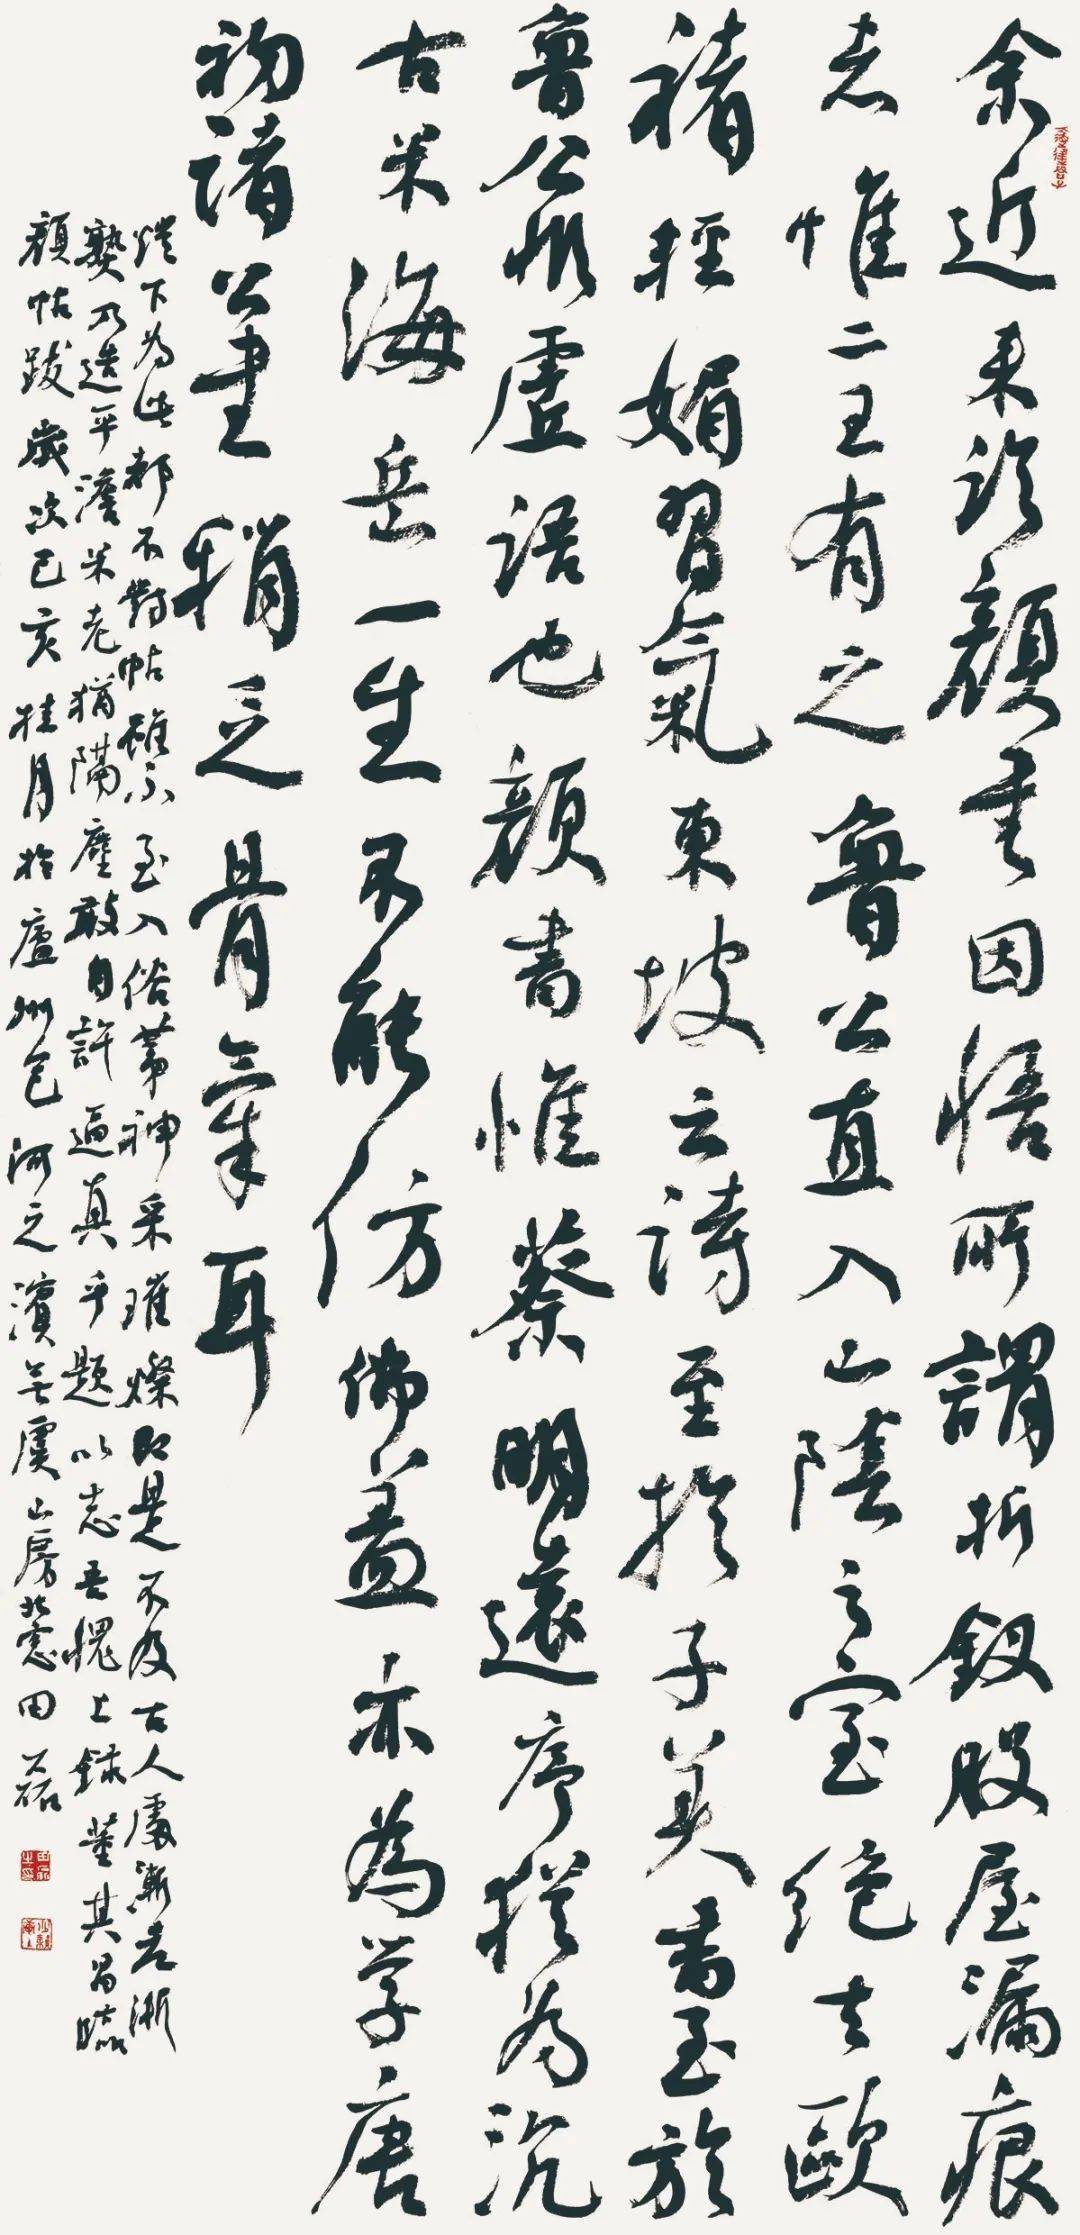 余近来临颜书因悟所謂折釵股屋漏痕
者惟二王有之魯公直入山陰之室絕去歐
褚輕媚習氣東坡云詩至於子美書至於
魯公非虛語也顏書惟蔡明遠序猶為沉
古米海岳一生不能仿佛蓋亦為學唐
初諸公書稍乏骨氣耳
燈下為此都不對帖雖不至入俗第神采璀燦即是不及古人處漸老漸
熟乃造平澹米老猶隔塵敢自許逼真乎題以志吾愧上錄董其昌臨
顏帖跋歲次己亥桂月於廬州包河之濱 虞山房北窓田磊